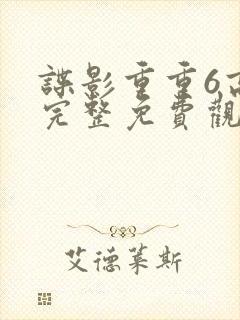 諜影重重6高
完整免費觀
艾德莱斯